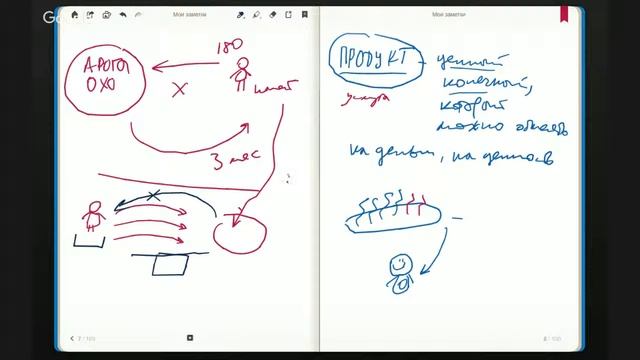 Мои заметки
Мои заметки
180
ОХО
X
3 мес
X
ПРОДУКТ - ценный
конечный,
который
услуга
можно обменять
на деньги, на ценность
7 / 100
8 / 100